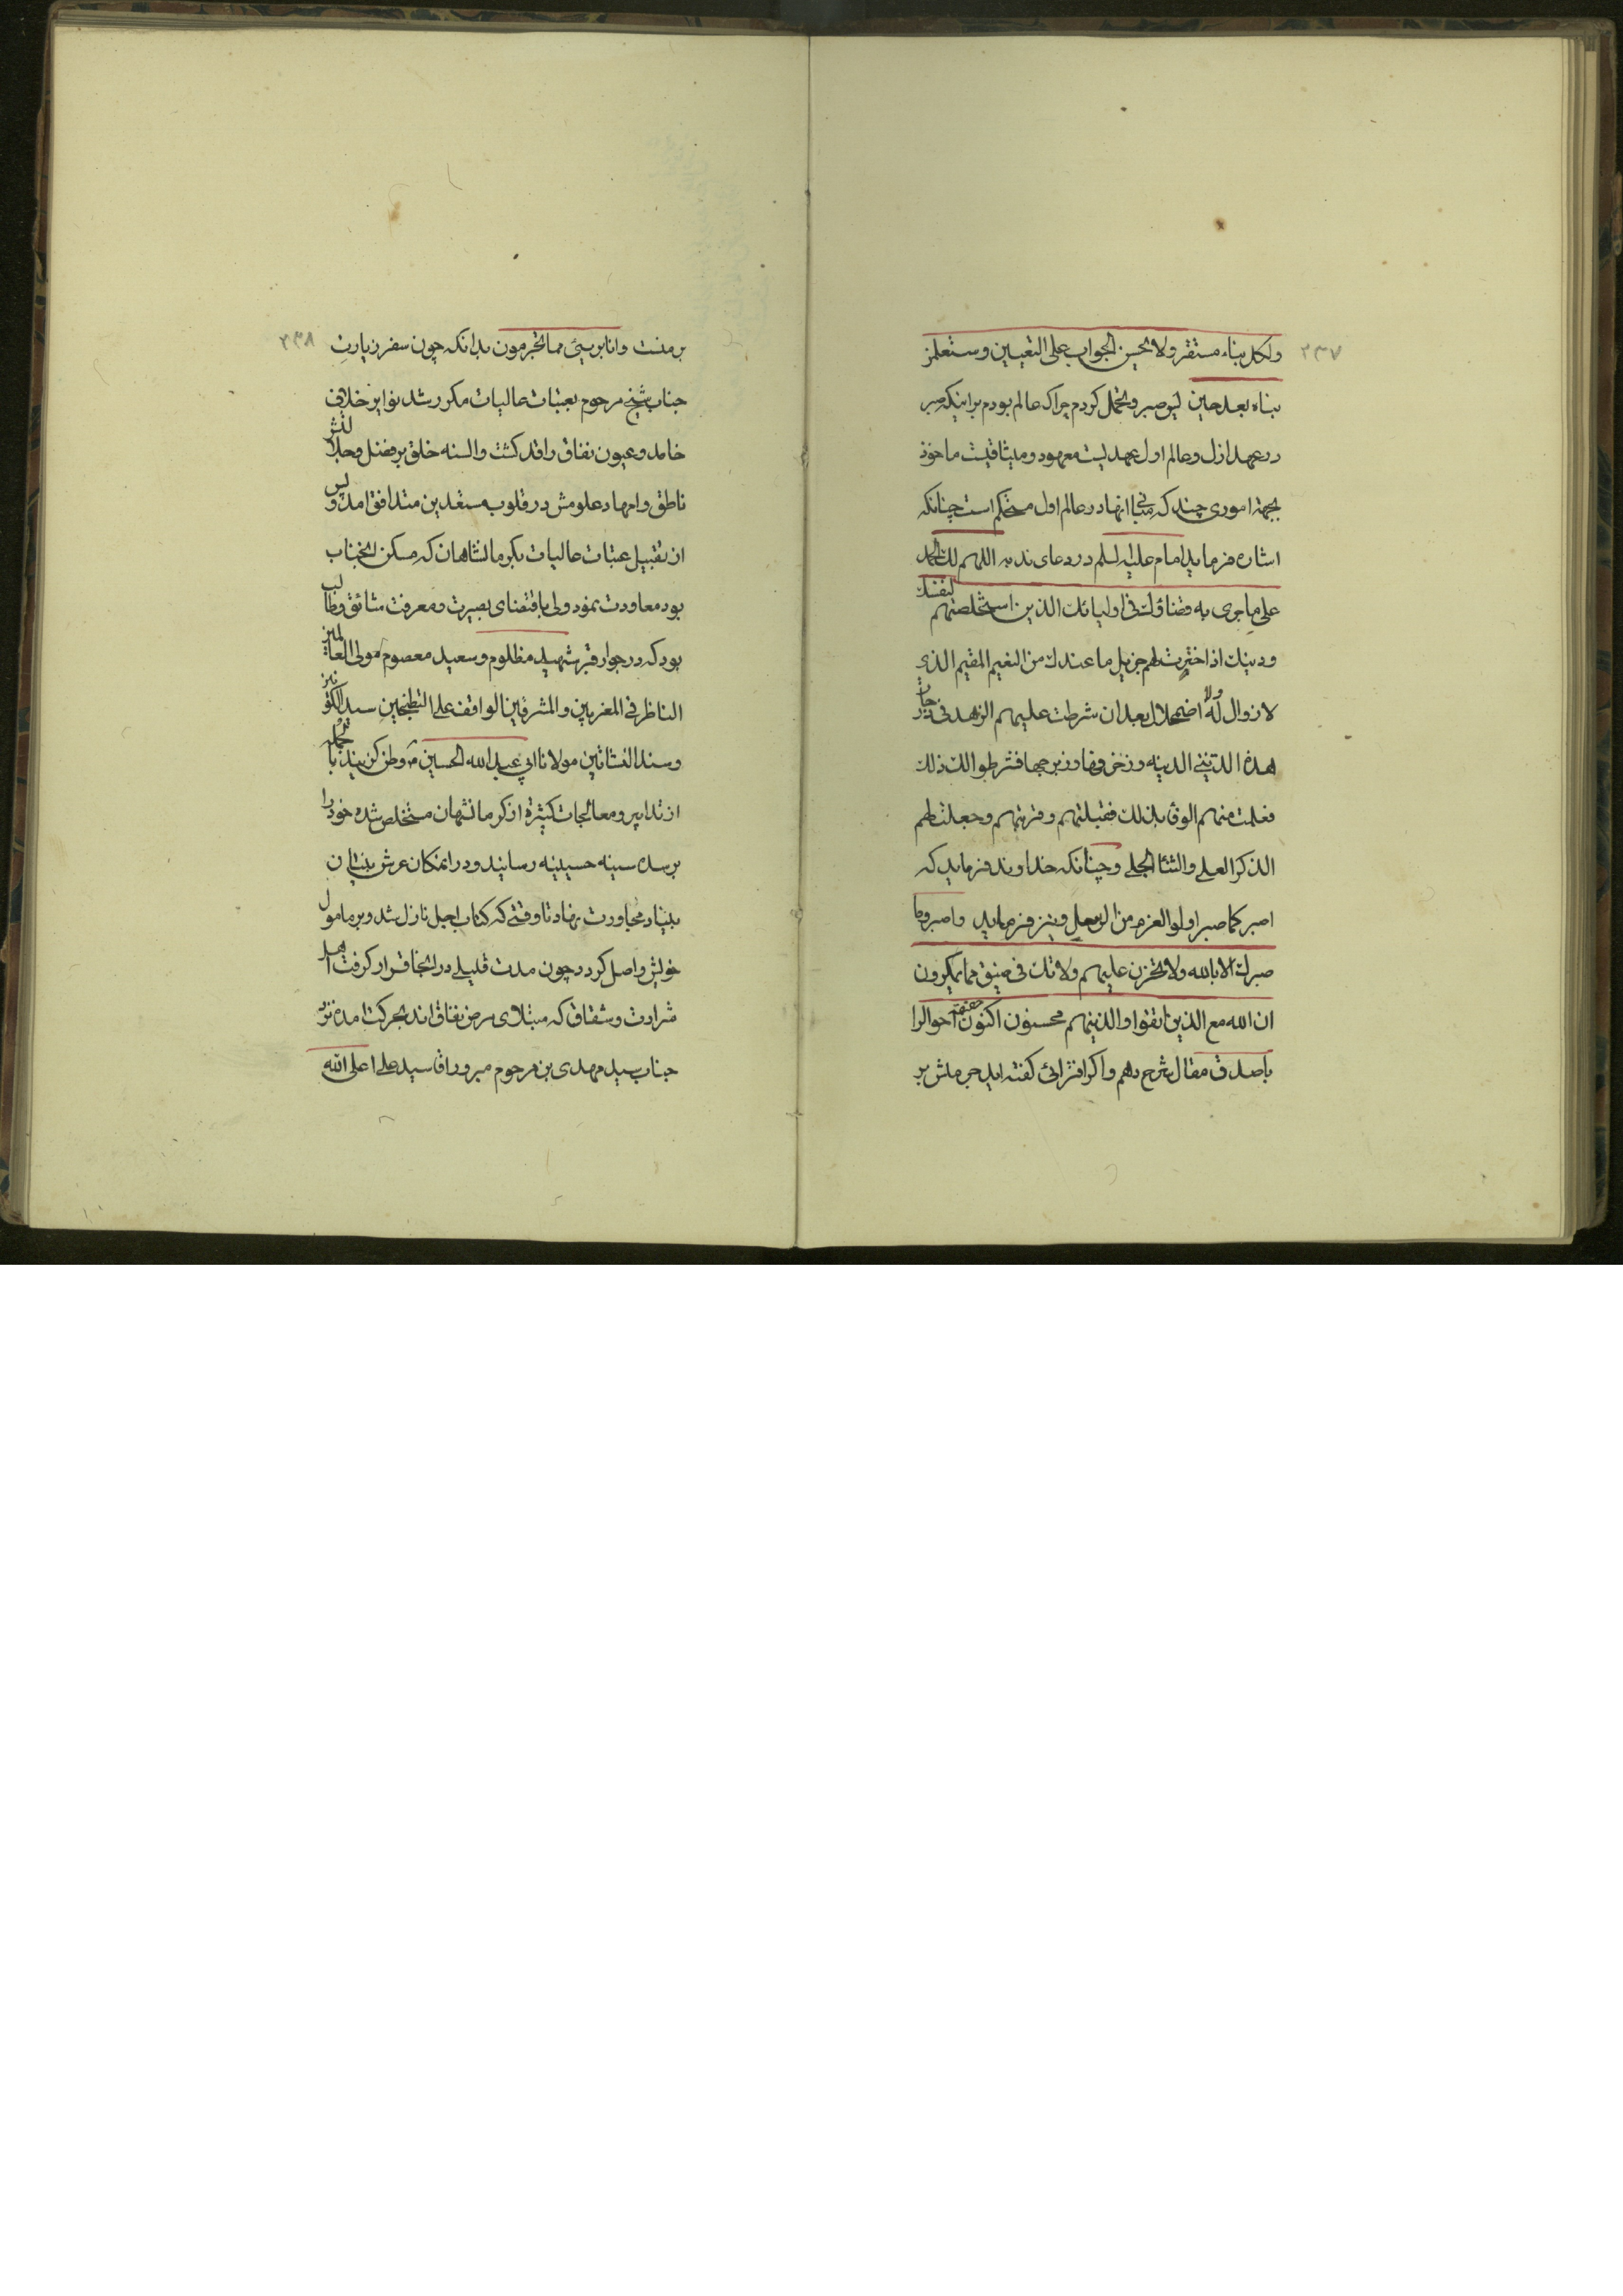 ۲۳۷
ولکل بناء مستقر ولا یحسن الجواب علی التعیین وستعلمن
بناه بعد حین لیو صبر و تحمل کردم چرا که عالم بودم براینکه صبر
در عهد ازل و عالم اول عهدیست معهود و میثاقیست ماخوذ
بجهة اموری چند که مبانی انها در عالم اول مستحکم است چنانکه
اشاره فرماید امام علیه السلم در دعای ندبه اللهم لک الحمد
علی ما جری به قضاؤک فی اولیائک الذین استخلصتهم لنفسک
و دینک اذا اخترت لهم جزیل ما عندک من النعیم المقیم الذی
لا زوال له ولا اضمحلال بعد ان شرطت علیهم الزهد فی درجات
هذه الدنیا الدنیه و زخرفها و زبرجها فشرطوا لک ذلک
فعلمت منهم الوفا بذلک فقبلتهم و قربتهم و جعلت لهم
الذکر العلی والثناء الجلی و چنانکه خداوند فرماید که
اصبر کما صبر اولوا العزم من الرسل و نیز فرماید واصبر وما
صبرک الا بالله ولا تحزن علیهم ولا تک فی ضیق مما یمکرون
ان الله مع الذین اتقوا والذینهم محسنون اکنون حقیقة احوال را
با صدق مقال شرح دهم و اگر افترائی گفته اید جرمش بر
۲۳۸
بر منست وانا بریئ مما تجرمون بدانکه چون سفر زیارت
جناب شیخ مرحوم بعتبات عالیات مکرر شد نوایر خلاف
خامد و عیون نفاق راقد کشت والسنه خلق بر فضل و جلالتش
ناطق و امهاد علومش در قلوب مستعدین متدافق امد و پس
از تقبیل عتبات عالیات بکرمانشاهان که مسکن انجناب
بود معاودت نمود ولی باقتضای بصیرت و معرفت شائق و طالب
بود که در جوار قبر شهید مظلوم و سعید معصوم مولی العالمین
الناظر فی المغربین والمشرقین الواقف علی التطنجین سید الکونین
وسند النشاتین مولانا ابی عبدالله الحسین ع وطن کزیند بالجمله
از تدابیر و معالجات کثیرة از کرمانشهان مستخلص شده خود را
بر سده سینه حسینیه رسانید و در انمکان عرش بنیان
بنیاد مجاورت نهاد تا وقتی که کتاب اجل نازل شد و بر مامول
خویش واصل کردد چون مدت قلیلی در انجا قرار کرفت اهل
شرادت و شقاق که مبتلای مرض نفاق اند بحرکت امده نزد
جناب سید مهدی بن مرحوم مبرور اقا سید علی اعلی الله